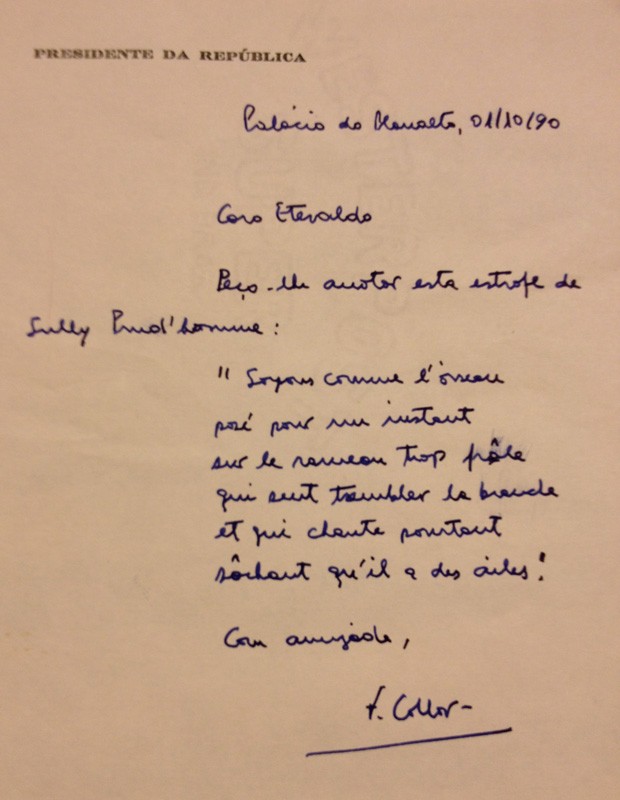 PRESIDENTE DA REPÚBLICA
Palácio do Planalto, 01/10/90
Caro Etevaldo
Peço-lhe anotar esta estrofe de
Sully Prud'homme:
" Soyons comme l'oiseau
posé pour un instant
sur le rameau trop frôle
qui sent trembler la branche
et qui chante pourtant
sâchant qu'il a des ailes!
Com amizade,
F. Collor